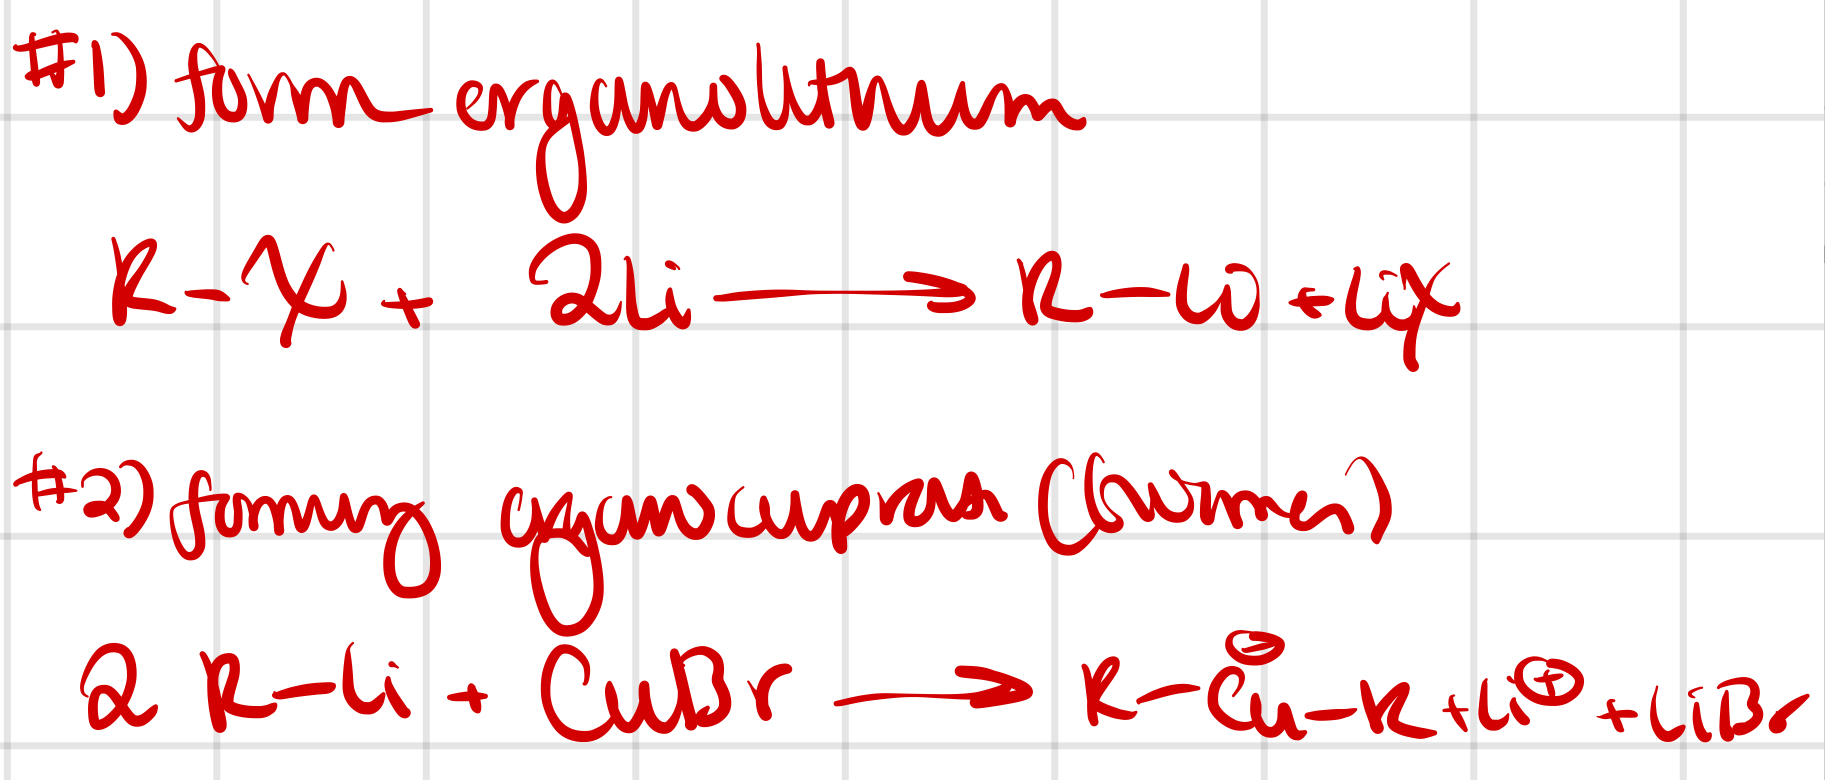 #1) form organolithium
R-X + 2Li → R-Li + LiX
#2) forming organocuprate (Gilman)
2 R-Li + CuBr → R-Cu⊖-R + Li⊕ + LiBr